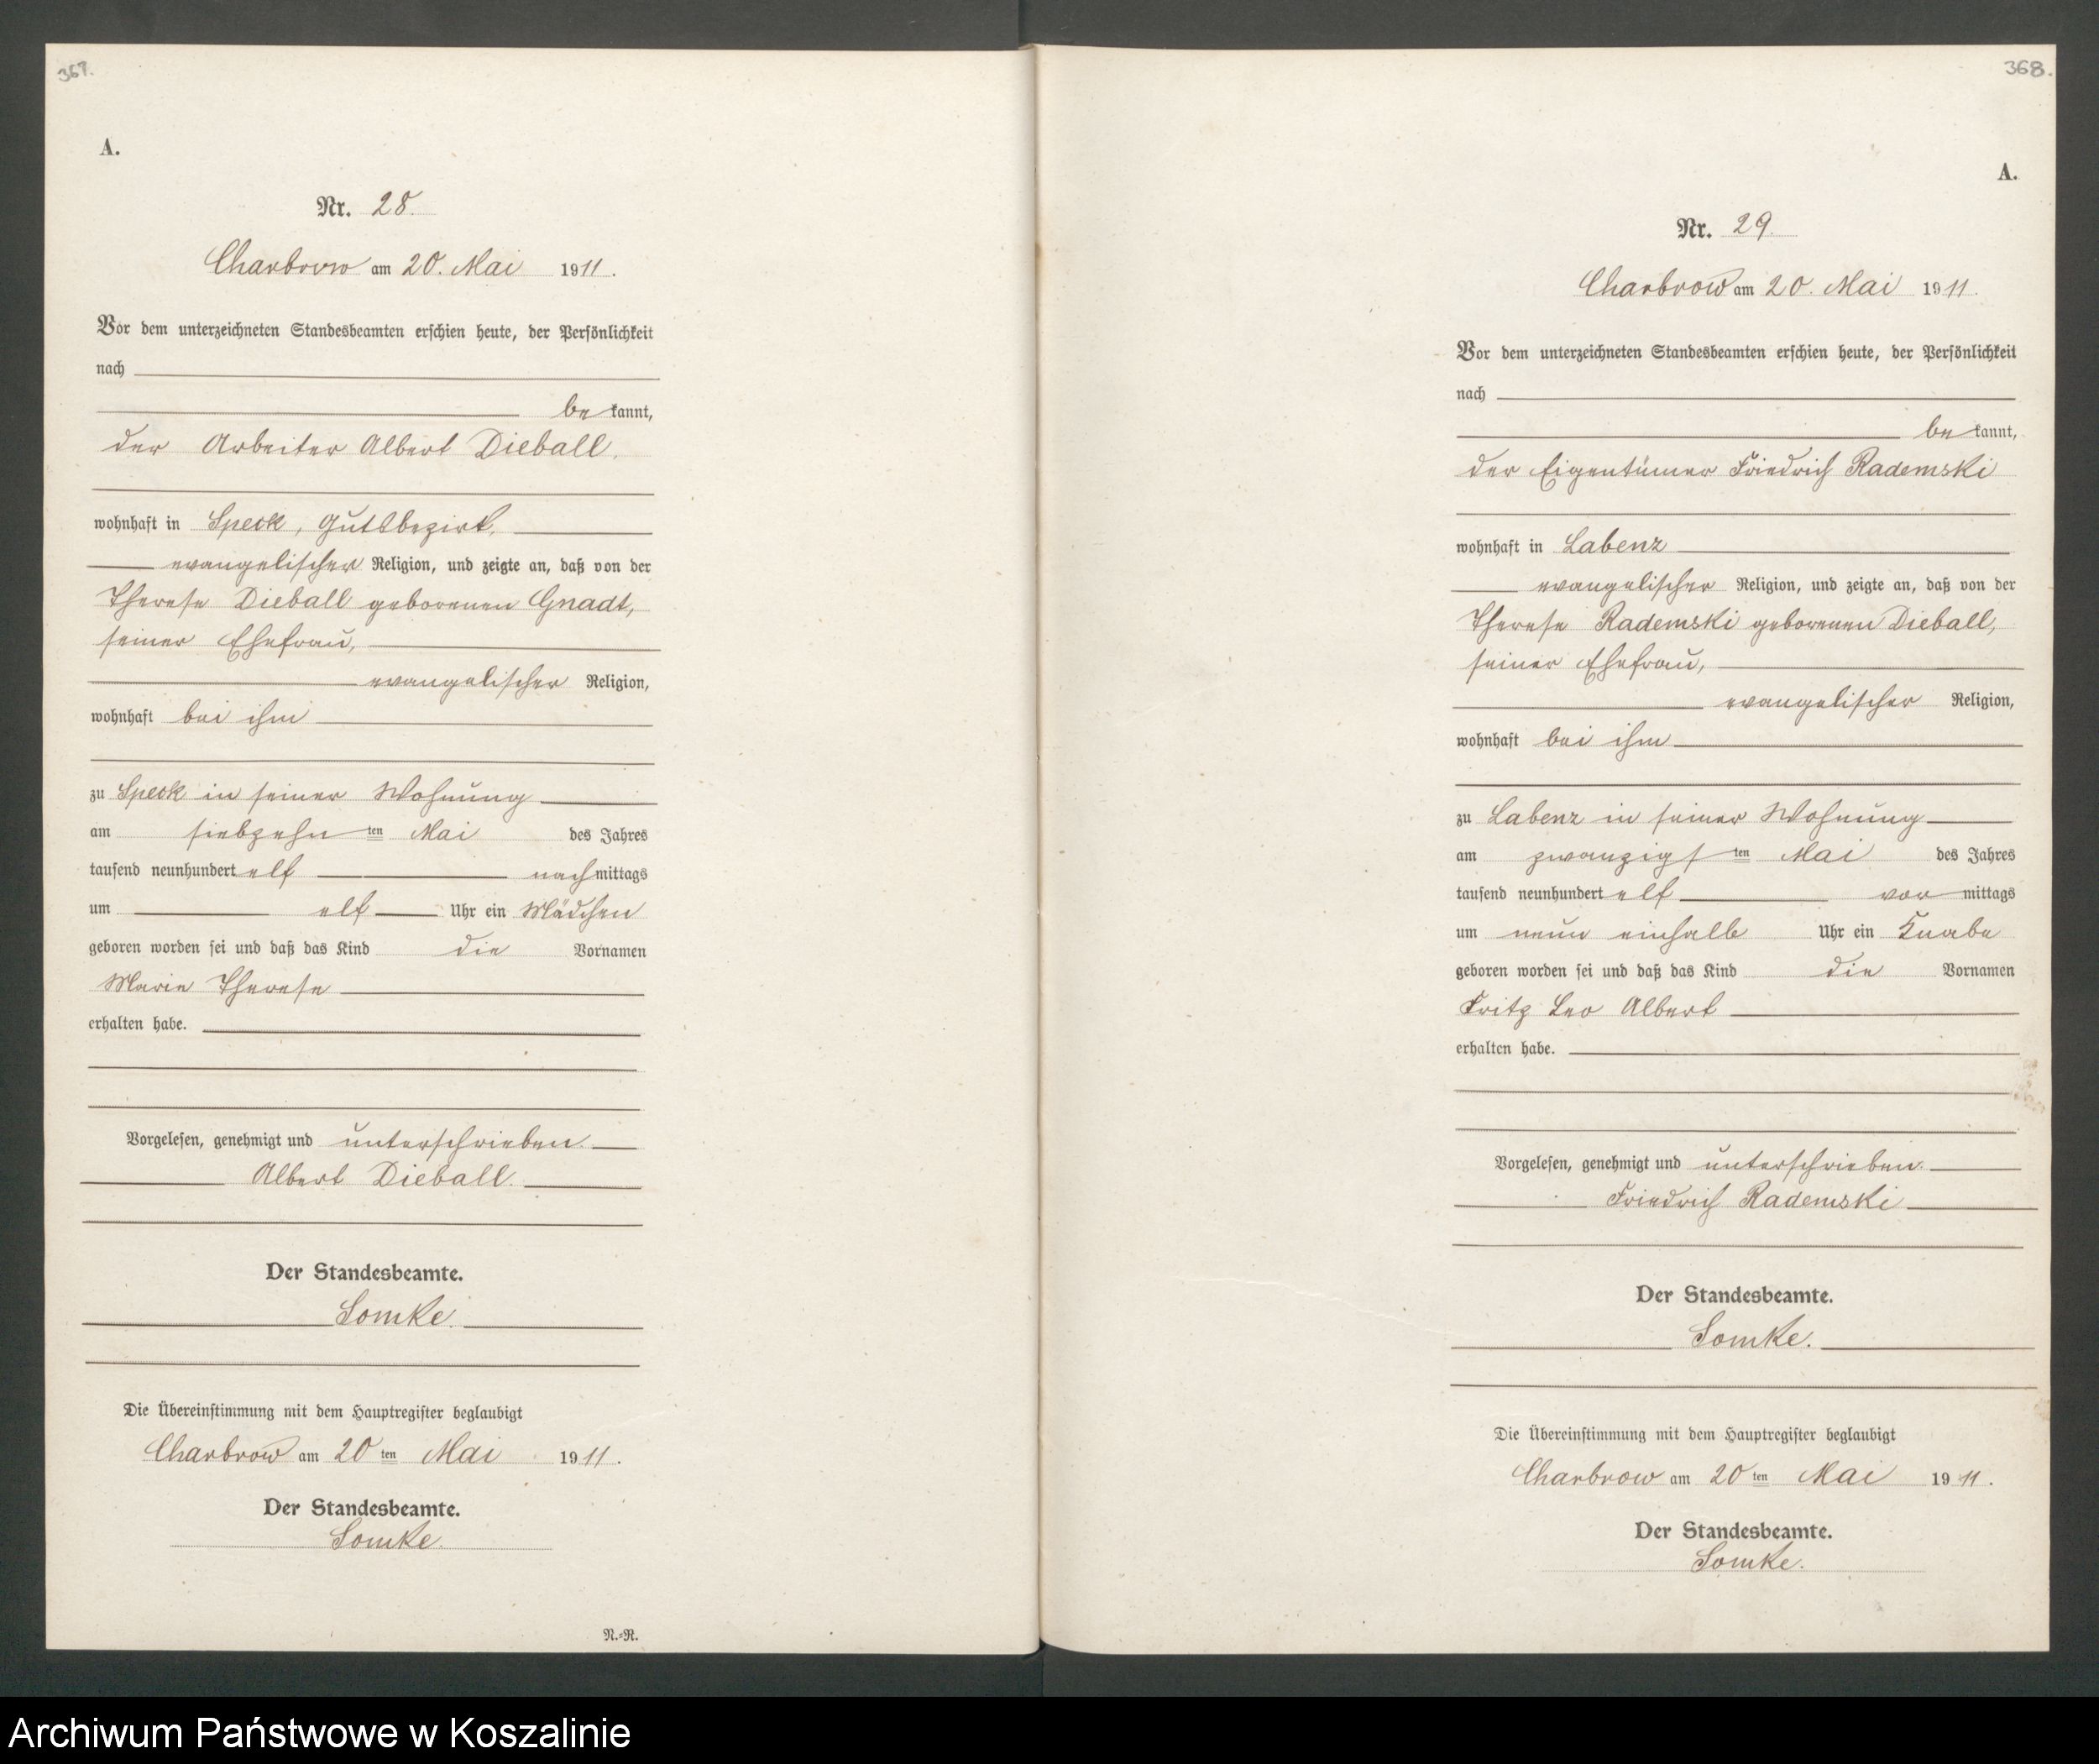 367.
A.
Nr. 28.
Charbrow am 20. Mai 1911.
Vor dem unterzeichneten Standesbeamten erschien heute, der Persönlichkeit
nach
be kannt,
der Arbeiter Albert Dieball.
wohnhaft in Speck, Gutsbezirk,
evangelischer Religion, und zeigte an, daß von der
Therese Dieball geborenen Gnadt,
seiner Ehefrau,
evangelischer Religion,
wohnhaft bei ihm
zu Speck in seiner Wohnung
am siebzehn ten Mai des Jahres
tausend neunhundert elf nachmittags
um elf Uhr ein Mädchen
geboren worden sei und daß das Kind die Vornamen
Marie Therese
erhalten habe.
Vorgelesen, genehmigt und unterschrieben.
Albert Dieball.
Der Standesbeamte.
Somke.
Die Übereinstimmung mit dem Hauptregister beglaubigt
Charbrow am 20 ten Mai 1911.
Der Standesbeamte.
Somke.
N.=R.
368.
A.
Nr. 29.
Charbrow am 20. Mai 1911.
Vor dem unterzeichneten Standesbeamten erschien heute, der Persönlichkeit
nach
be kannt,
der Eigentümer Friedrich Rademski
wohnhaft in Labenz
evangelischer Religion, und zeigte an, daß von der
Therese Rademski geborenen Dieball,
seiner Ehefrau,
evangelischer Religion,
wohnhaft bei ihm
zu Labenz in seiner Wohnung
am zwanzigs ten Mai des Jahres
tausend neunhundert elf vor mittags
um neun einhalb Uhr ein Knabe
geboren worden sei und daß das Kind die Vornamen
Fritz Leo Albert
erhalten habe.
Vorgelesen, genehmigt und unterschrieben.
Friedrich Rademski
Der Standesbeamte.
Somke.
Die Übereinstimmung mit dem Hauptregister beglaubigt
Charbrow am 20 ten Mai 1911.
Der Standesbeamte.
Somke.
Archiwum Państwowe w Koszalinie